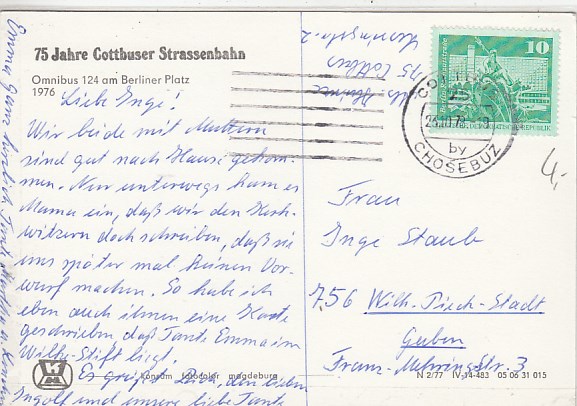 75 Jahre Cottbuser Strassenbahn
Omnibus 124 am Berliner Platz
1976
Liebe Inge!
Wir beide mit Muttern
sind gut nach Hause gekom-
men. Nur unterwegs kam es
Mama ein, daß wir den
witzern doch schreiben, daß sie
uns später mal keinen Vor-
wurf machen. So habe ich
eben auch ihnen eine Karte
geschrieben, daß Tante Emma im
Wilke-Stift liegt.
Es grüßt Dich, den lieben
Ingolf und unsere liebe Tante
Emma ganz herzlich
75 Cottbus
10
DEUTSCHE DEMOKRATISCHE REPUBLIK
COTTBUS
2
23.10.78
by
CHOSEBUZ
4,-
Frau
Inge Staub
756 Wilh.-Pieck-Stadt
Guben
Franz-Mehring Str. 3
konsum fotocolor magdeburg
N 2/77 IV-14-483 05 06 31 015